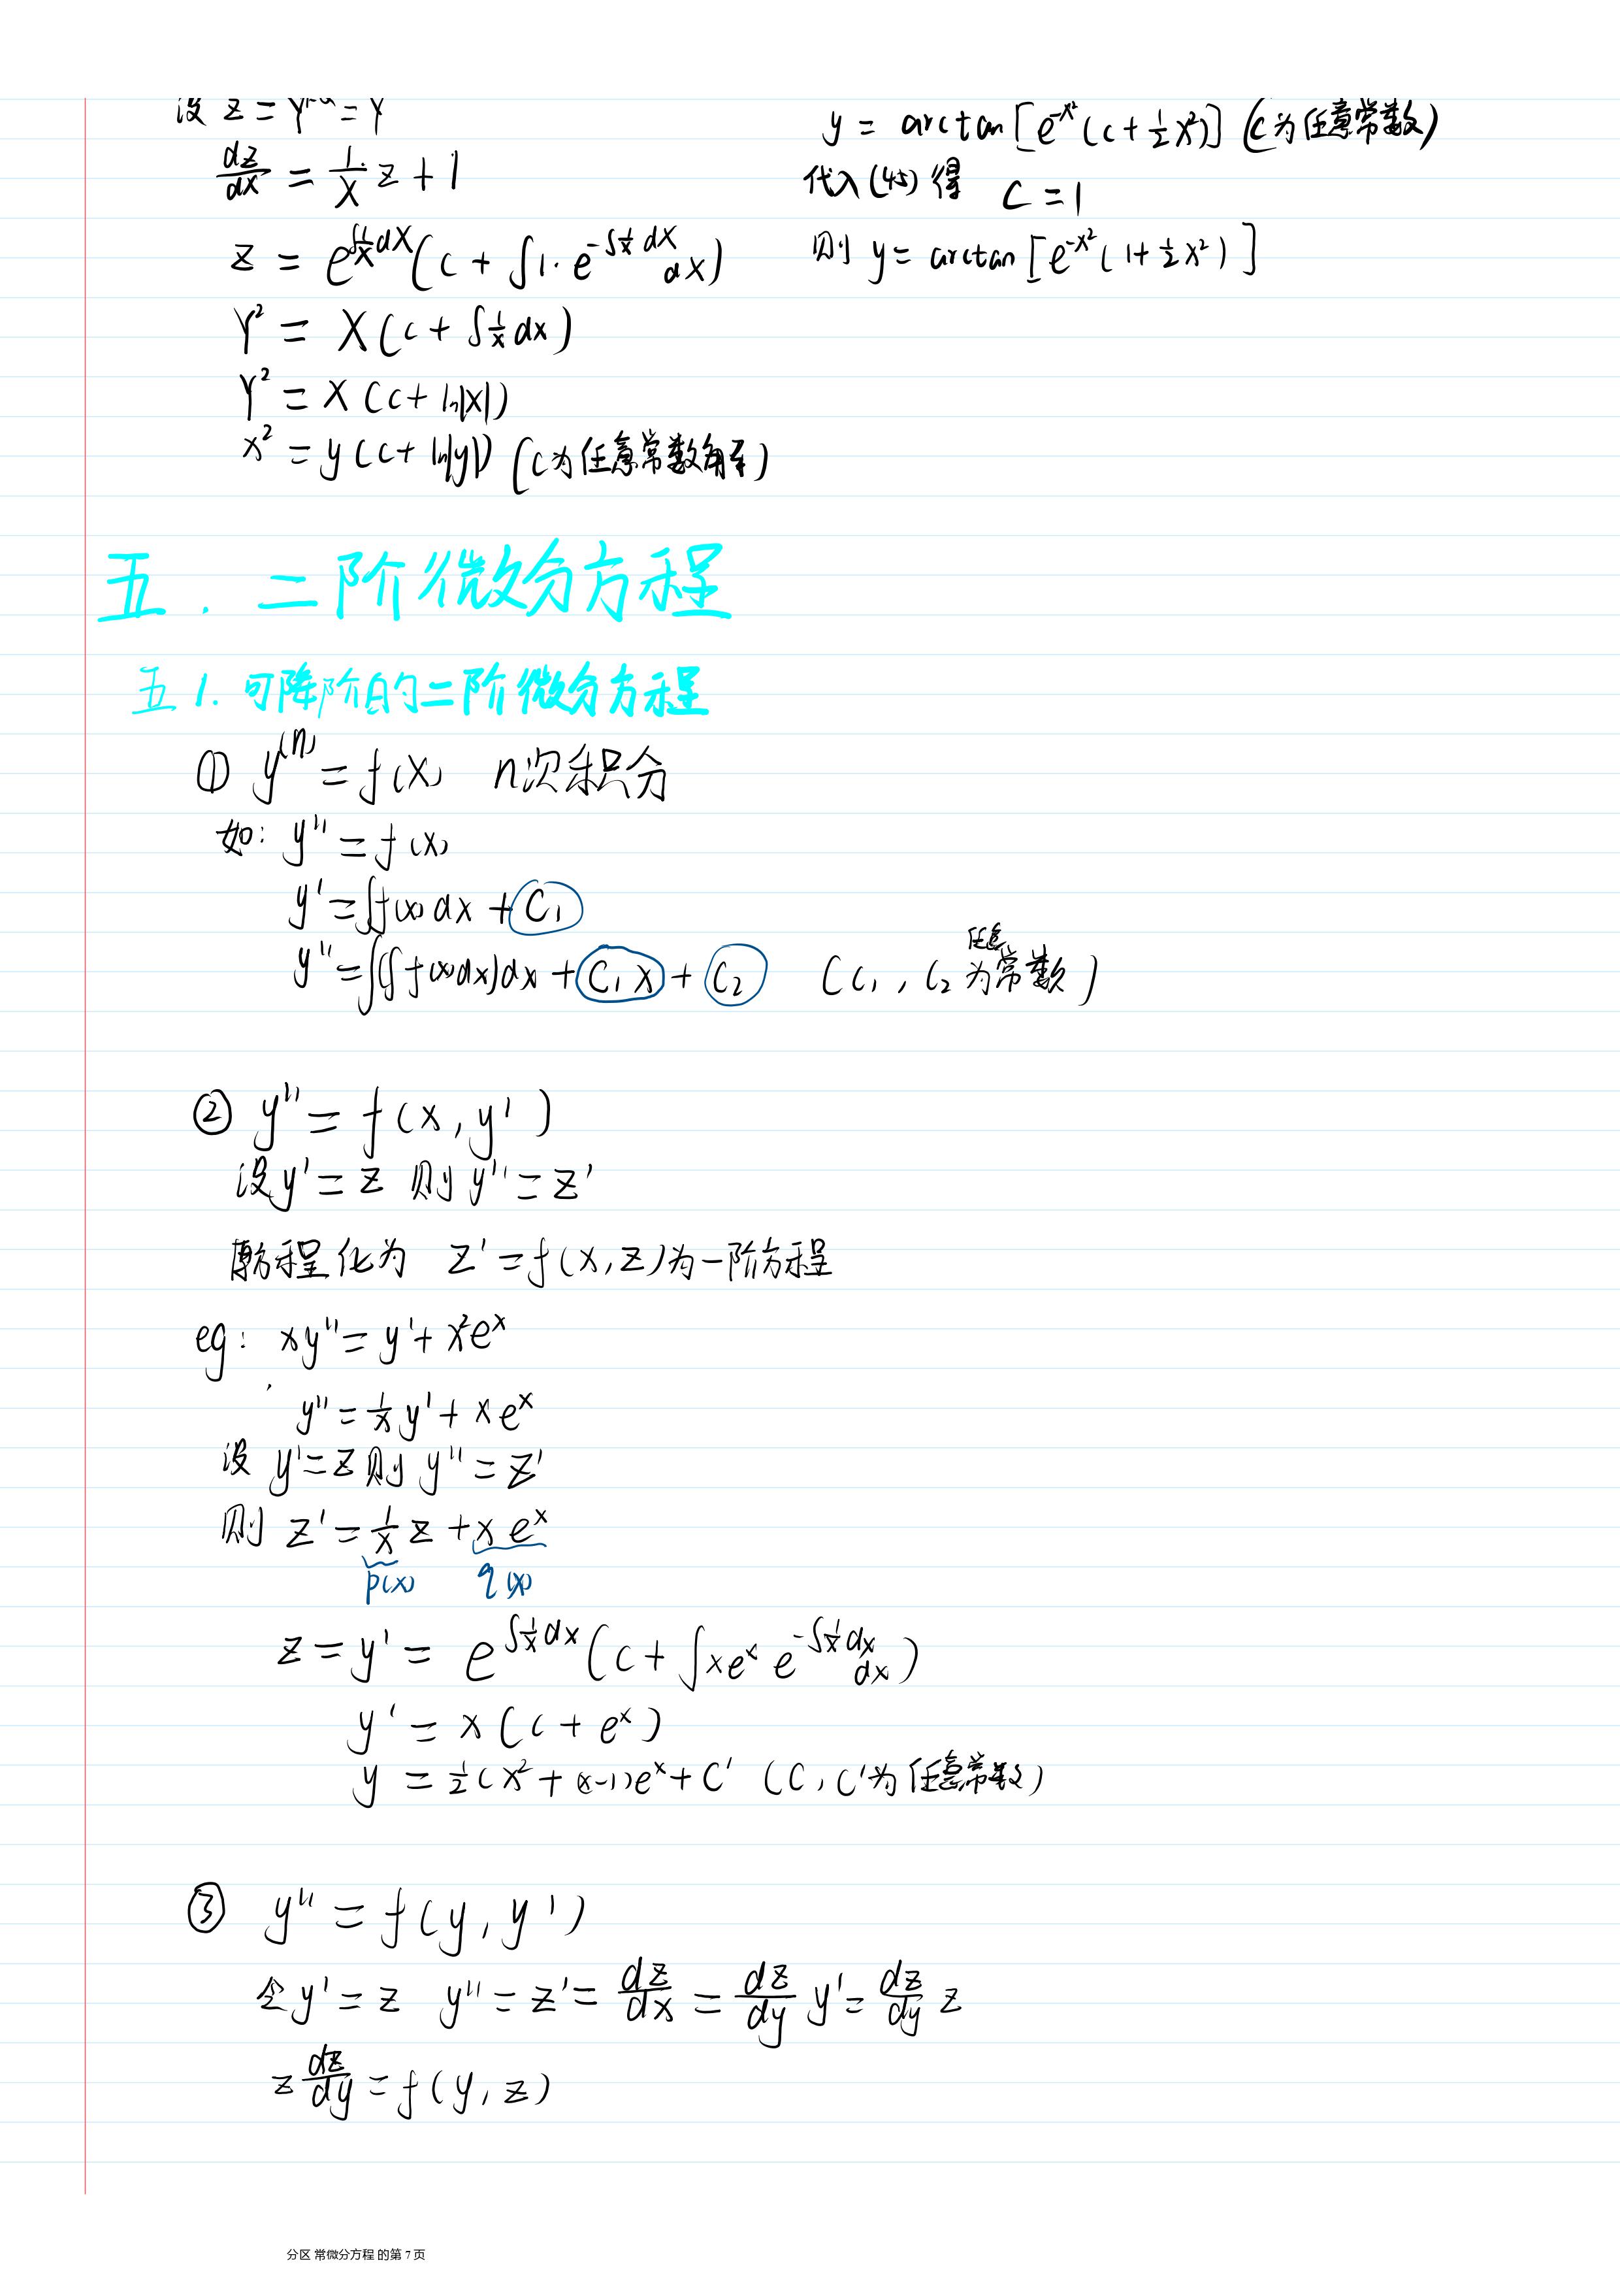 设 z = Y = Y
dz/dx = 1/x z + 1
z = e^{∫1/x dx}(c + ∫1·e^{-∫1/x dx} dx)
Y² = X(c + ∫1/x dx)
Y² = X(c + ln|X|)
x² = y(c + ln|y|) (c为任意常数
y = arctan[e^{-x²}(c + 1/2 x²)] (c为任意常数)
代入(45)得 C = 1
则 y = arctan[e^{-x²}(1 + 1/2 x²)]
五. 二阶微分方程
五1. 可降阶的二阶微分方程
① y^{(n)} = f(x) n次积分
如: y'' = f(x)
y' = ∫f(x)dx + C₁
y'' = ∫(∫f(x)dx)dx + C₁x + C₂ (C₁, C₂为任意常数)
② y'' = f(x, y')
设y' = z 则 y'' = z'
原方程化为 z' = f(x, z)为一阶方程
eg: xy'' = y' + x²e^x
y'' = 1/x y' + xe^x
设 y' = z 则 y'' = z'
则 z' = 1/x z + xe^x
p(x) q(x)
z = y' = e^{∫1/x dx}(c + ∫xe^x e^{-∫1/x dx} dx)
y' = x(c + e^x)
y = 1/2 (x² + (x-1)e^x + C' (C, C'为任意常数)
③ y'' = f(y, y')
令y' = z y'' = z' = dz/dx = dz/dy y' = dz/dy z
z dz/dy = f(y, z)
分区 常微分方程 的第 7 页